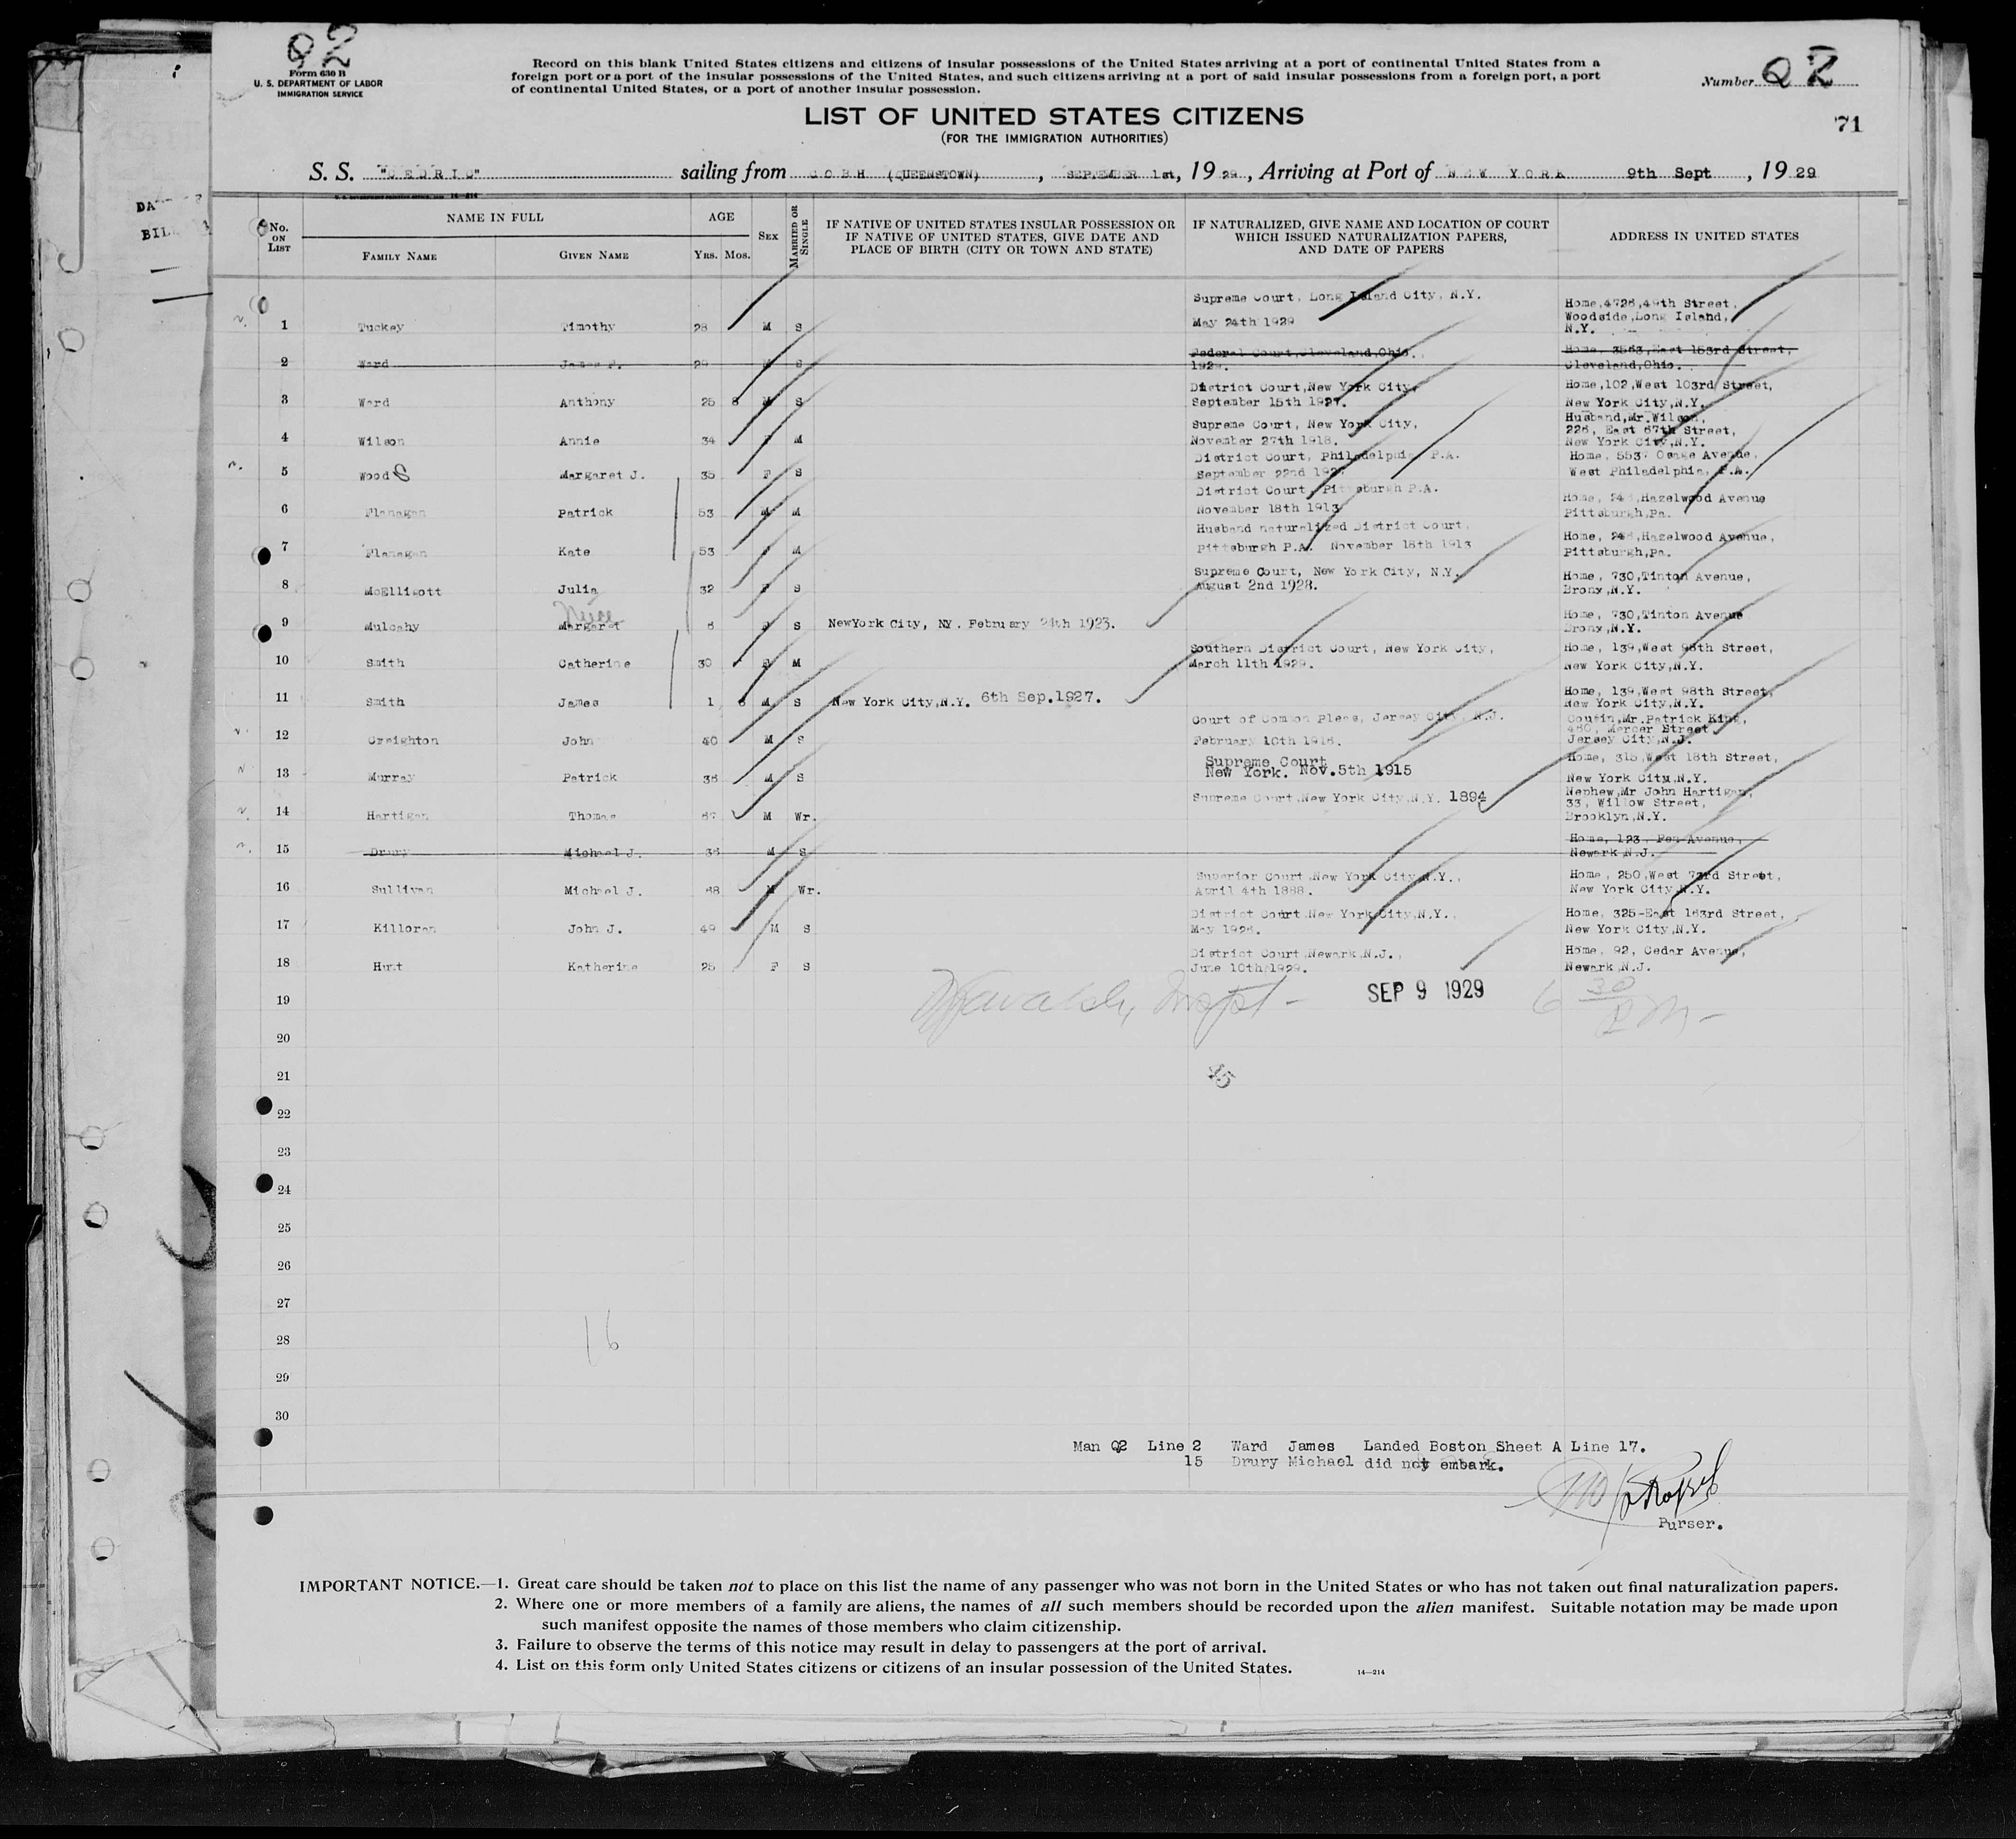 Q2
Form 630 B
U. S. DEPARTMENT OF LABOR
IMMIGRATION SERVICE
Record on this blank United States citizens and citizens of insular possessions of the United States arriving at a port of continental United States from a
foreign port or a port of the insular possessions of the United States, and such citizens arriving at a port of said insular possessions from a foreign port, a port
of continental United States, or a port of another insular possession.
Number Q 2
71
LIST OF UNITED STATES CITIZENS
(FOR THE IMMIGRATION AUTHORITIES)
S. S. "CEDRIC" sailing from COBH (QUEENSTOWN), SEPTEMBER 1st, 1929, Arriving at Port of NEW YORK 9th Sept, 1929
No. ON LIST
NAME IN FULL
FAMILY NAME
GIVEN NAME
AGE
YRS. MOS.
SEX
MARRIED OR SINGLE
IF NATIVE OF UNITED STATES INSULAR POSSESSION OR
IF NATIVE OF UNITED STATES, GIVE DATE AND
PLACE OF BIRTH (CITY OR TOWN AND STATE)
IF NATURALIZED, GIVE NAME AND LOCATION OF COURT
WHICH ISSUED NATURALIZATION PAPERS,
AND DATE OF PAPERS
ADDRESS IN UNITED STATES
1 Tuckey Timothy 28 M S Supreme Court, Long Island City, N.Y. May 24th 1929 Home,4726,49th Street, Woodside,Long Island, N.Y.
2 Ward James P. 29 M S Federal Court,Cleveland,Ohio. Home, 3563,East 153rd Street, Cleveland,Ohio.
3 Ward Anthony 25 8 M S District Court,New York City, September 15th 1927. Home,102,West 103rd Street, New York City,N.Y.
4 Wilson Annie 34 F M Supreme Court, New York City, November 27th 1918. Husband,Mr.Wilson, 226, East 67th Street, New York City,N.Y.
5 Woods Margaret J. 35 F S District Court, Philadelphia P.A. September 22nd Home, 5537 Osage Avenue, West Philadelphia, P.A.
6 Flanagan Patrick 53 M M District Court, Pittsburgh P.A. November 18th 1913 Home, Hazelwood Avenue Pittsburgh,Pa.
7 Flanagan Kate 53 F M Husband naturalized District Court, Pittsburgh P.A. November 18th 1913 Home, Hazelwood Avenue, Pittsburgh,Pa.
8 McElligott Julia 32 F S Supreme Court, New York City, N.Y. August 2nd 1928. Home, 730,Tinton Avenue, Bronx,N.Y.
Niece
9 Mulcahy Margaret 6 F S NewYork City, NY. February 24th 1923. Home, 730,Tinton Avenue Bronx,N.Y.
10 Smith Catherine 30 F M Southern District Court, New York City, March 11th 1929. Home, 139,West 98th Street, New York City,N.Y.
11 Smith James 1 M S New York City,N.Y. 6th Sep.1927. Home, 139,West 98th Street, New York City,N.Y.
12 Creighton John 40 M S Court of Common Pleas, Jersey City, N.J. February 10th 1918. Cousin,Mr.Patrick King, Mercer Street Jersey City,N.J.
13 Murray Patrick 38 M S Supreme Court New York. Nov.5th 1915 Home, 315,West 18th Street, New York City,N.Y.
14 Hartigan Thomas 67 M Wr. Supreme Court,New York City,N.Y. 1894 Nephew,Mr John Hartigan, 33, Willow Street, Brooklyn,N.Y.
15 Drury Michael J. 38 M S Home, 123 Avenue, Newark N.J.
16 Sullivan Michael J. 68 M Wr. Superior Court,New York City N.Y., April 4th 1888. Home, 250,West 73rd Street, New York City,N.Y.
17 Killoran John J. 49 M S District Court,New York City,N.Y., May Home, 325-East 163rd Street, New York City,N.Y.
18 Hunt Katherine 25 F S District Court,Newark,N.J., June 10th 1929. Home, 92, Cedar Avenue, Newark,N.J.
19 SEP 9 1929 6 30 PM
20
21
22
23
24
25
26
27
28
29
30
16
Man Q2 Line 2 Ward James Landed Boston Sheet A Line 17.
15 Drury Michael did not embark.
Purser.
IMPORTANT NOTICE.—1. Great care should be taken not to place on this list the name of any passenger who was not born in the United States or who has not taken out final naturalization papers.
2. Where one or more members of a family are aliens, the names of all such members should be recorded upon the alien manifest. Suitable notation may be made upon
such manifest opposite the names of those members who claim citizenship.
3. Failure to observe the terms of this notice may result in delay to passengers at the port of arrival.
4. List on this form only United States citizens or citizens of an insular possession of the United States.
14—214